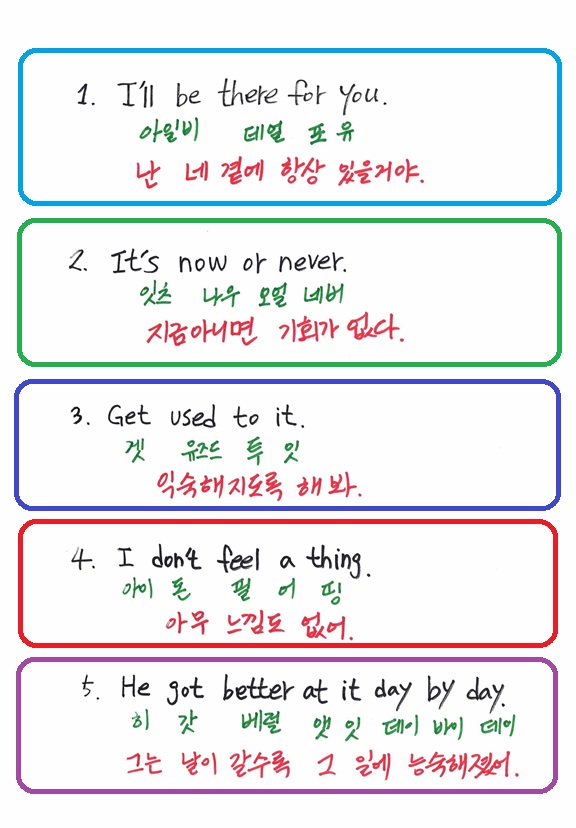 1. I'll be there for you.
아일비 데얼 포 유
난 네 곁에 항상 있을거야.
2. It's now or never.
잇츠 나우 오얼 네버
지금아니면 기회가 없다.
3. Get used to it.
겟 유즈드 투 잇
익숙해지도록 해 봐.
4. I don't feel a thing.
아이 돈 필 어 띵
아무 느낌도 없어.
5. He got better at it day by day.
히 갓 베럴 앳 잇 데이 바이 데이
그는 날이 갈수록 그 일에 능숙해졌어.